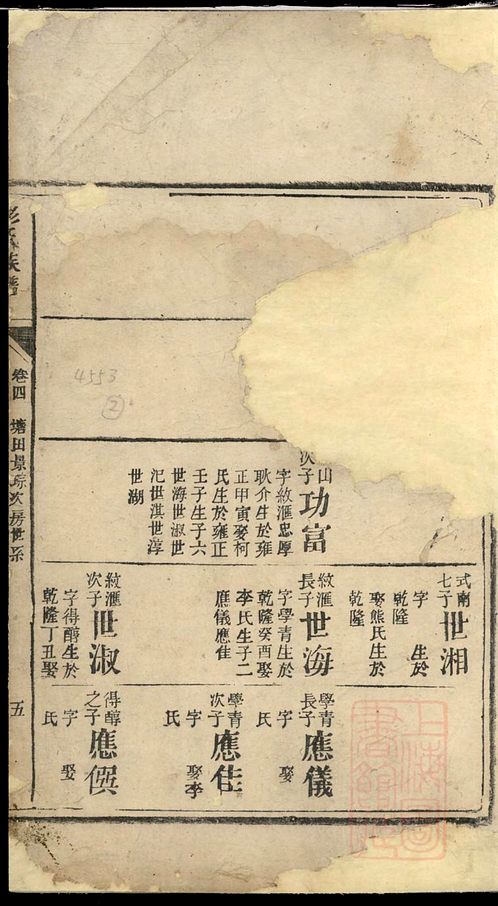 山
次子
功富
字紋滙忠厚
耿介生於雍
正甲寅娶柯
氏生於雍正
壬子生子六
世海世淑世
汜世淇世淳
世湖
式南
七子
世湘
字 生於
乾隆
娶熊氏生於
乾隆
紋滙
長子
世海
字學青生於
乾隆癸酉娶
李氏生子二
應儀應佳
紋滙
次子
世淑
字得醇生於
乾隆丁丑娶
學青
長子
應儀
字 娶
氏
學青
次子
應佳
字 娶李
氏
得醇
之子
應僎
字 娶
氏
族譜
卷四 塘田景琮次房世系
五
4553
2
上海圖書館藏